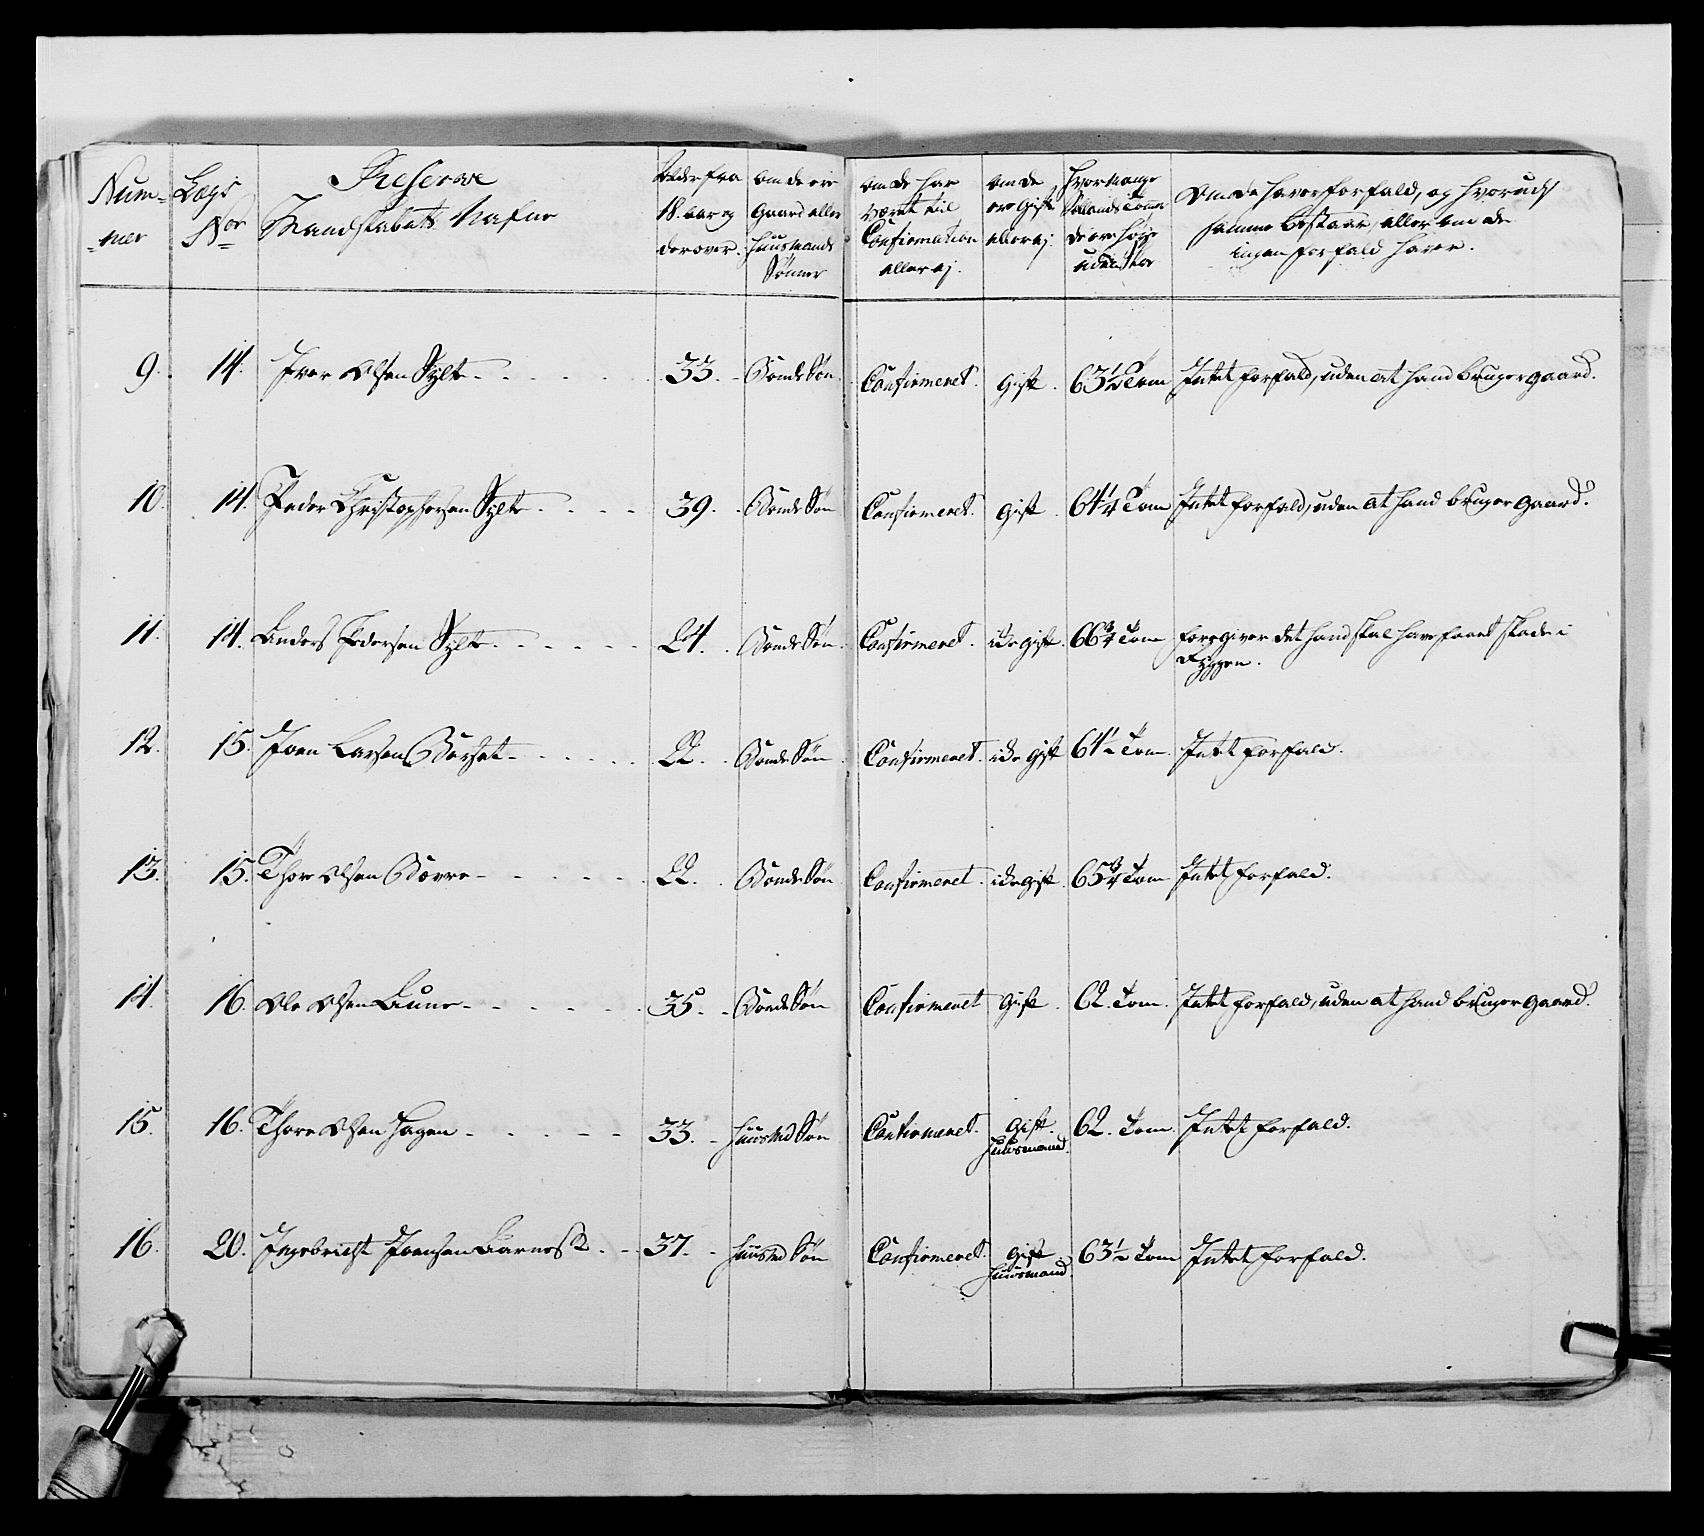 Num-
-mer
Lægs
No
Reserve
Mandskabets Nafne
Alder fra
18. aar og
derover.
om de ere
Gaard eller
Huusmands
Sønner
om de har
været til
Confirmation
eller ej.
om de
ere Gift
eller ej.
hvor mange
Sællands Tomer
de ere høje
uden Skoe
Om de haver forfald, og hvorudj
samme bestaar, eller om de
ingen forfald haver.
9. 14. Iver Olsen Sylte 33. Bonde Søn Confirmeret. Gift. 63½ Tom Intet forfald, uden at hand bruger gaard.
10. 14. Peder Christophersen Sylte 39. Bonde Søn Confirmeret. gift. 64¼ Tom Intet forfald, uden at hand bruger gaard.
11. 14. Anders Pedersen Sylte 24. Bonde Søn. Confirmeret. icke gift. 66¾ Tom foregiver det hand skal have faaet skade i
Ryggen.
12. 15. Joen Larsen Børset 22. Bonde Søn Confirmeret. icke gift 64½ Tom. Intet forfald.
13. 15. Thore Olsen Bøvre 22. Bonde Søn Confirmeret. icke gift. 65¾ Tom Intet forfald.
14. 16. Ole Olsen Aune 35. Bonde Søn Confirmeret Gift. 62. Tom. Intet forfald, uden at hand bruger gaard.
15. 16. Thore Olsen Hagen 33. Huusmd Søn Confirmeret. Gift. 62. Tom Intet forfald.
Huusmand.
16. 20. Ingebricht Joensen 37. Huusmd Søn Confirmeret. Gift 63½ Tom Intet forfald.
Huusmand.